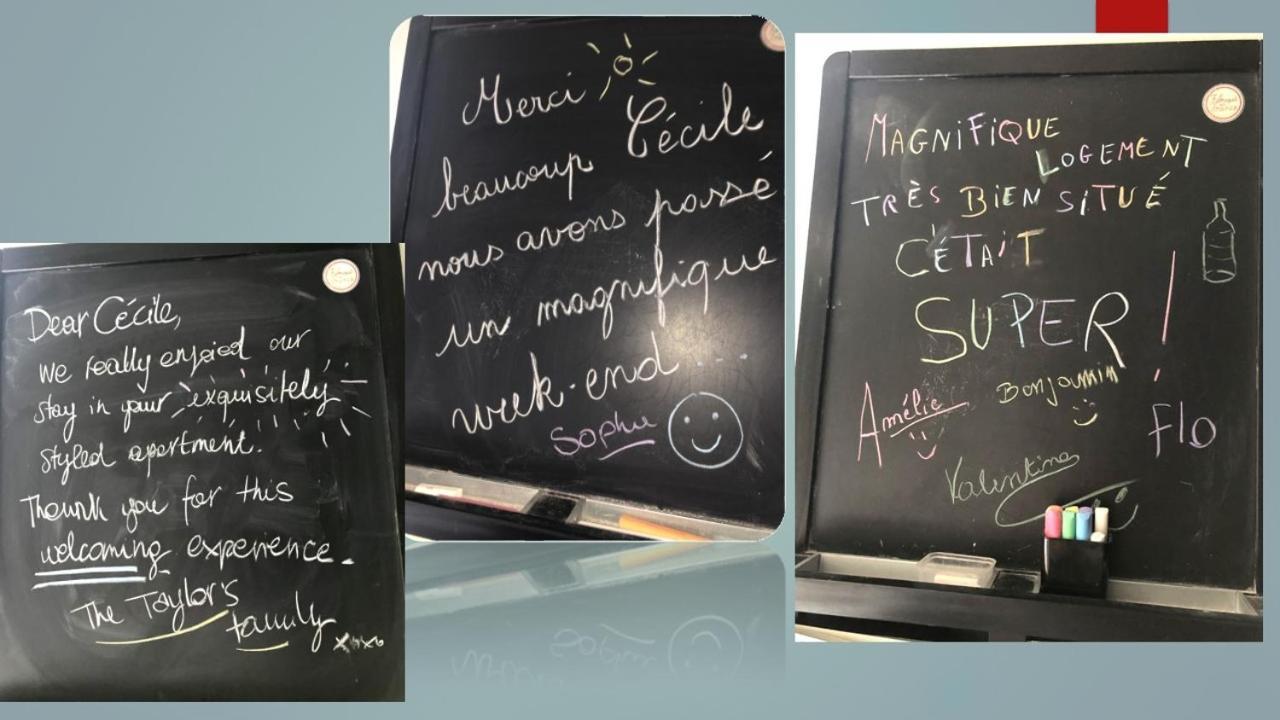 Dear Cécile,
we really enjoied our
stay in your exquisitely
styled apartment.
Thank you for this
welcoming experience.
The Taylor's
family
xoxo
Merci
Cécile
beaucoup
nous avons passé
un magnifique
week-end ...
Sophie
MAGNiFiQUE
LOGEMENT
TRÈS BiEN SiTUÉ
C'ÉTAiT
SUPER !
Amélie
Benjamin
Flo
Valentine